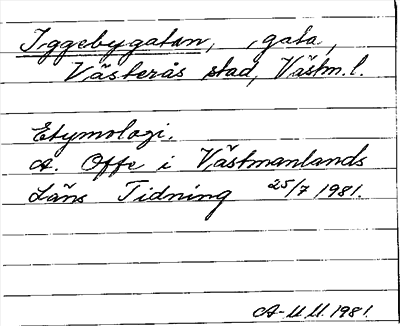 Iggebygatan, gata,
Västerås stad, Västm. l.
Etymologi.
A. Offe i Västmanlands
Läns Tidning 25/7 1981.
A-M.M. 1981.